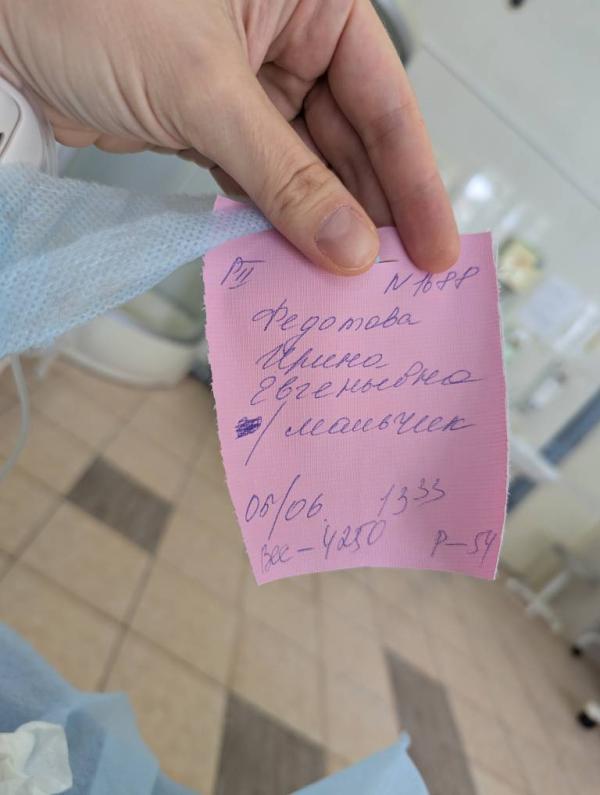 РII N 1688
Федотова
Ирина
Евгеньевна
/ мальчик
05/06 13 33
Вес – 4250 Р – 54